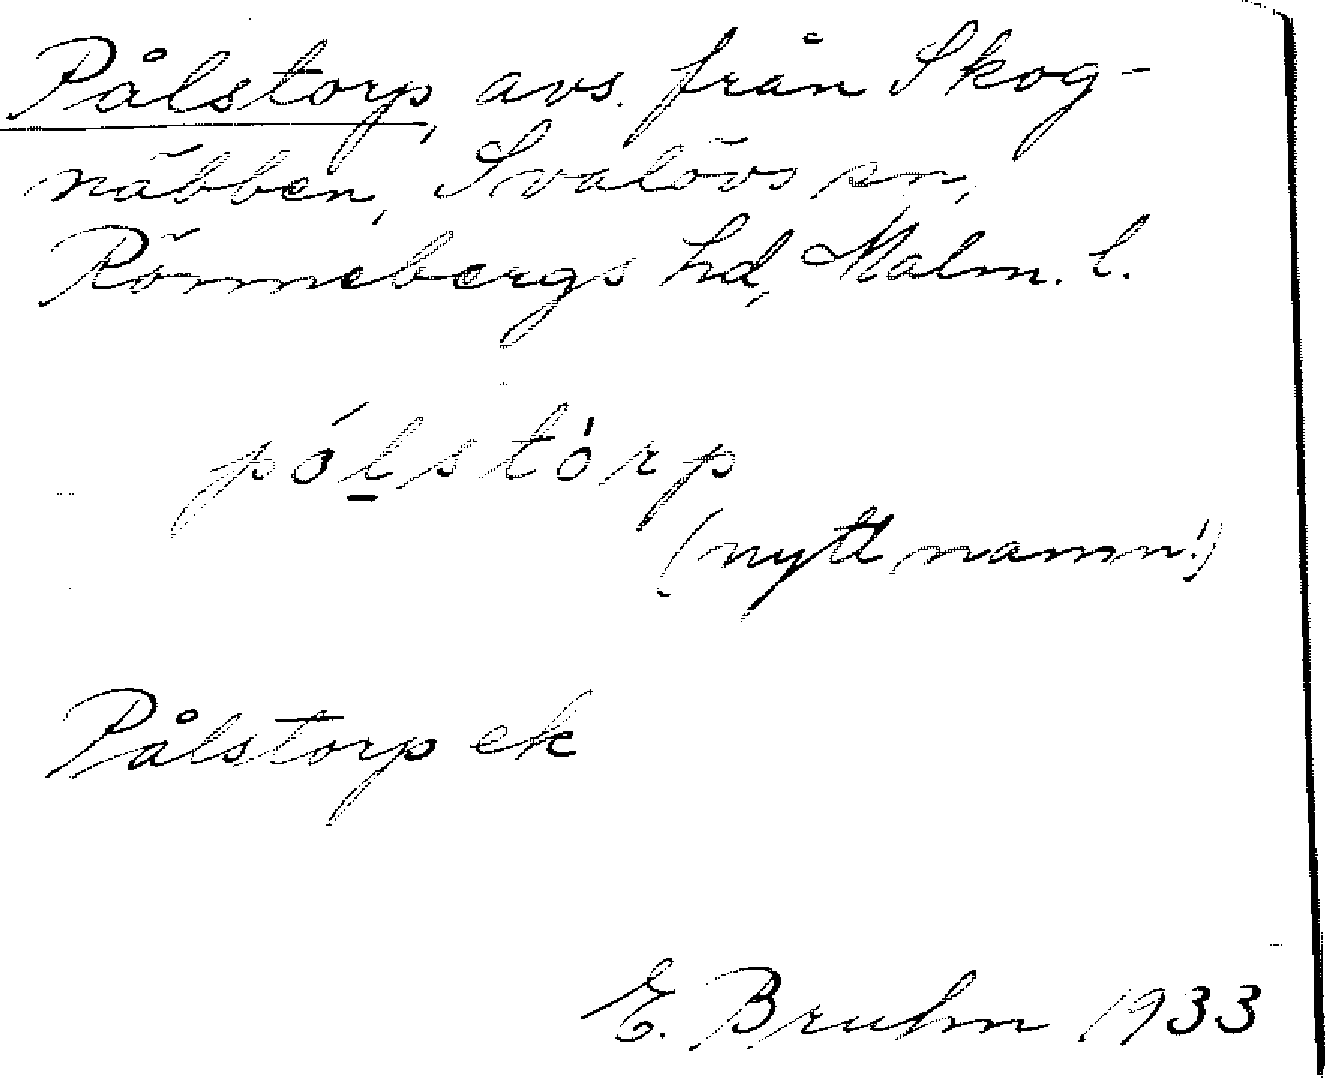 Pålstorp, avs. från Skog-
näbben, Svalövs sn,
Rönnebergs hd, Malm. l.
pólstòrp
(nytt namn!)
Pålstorp ek
E. Bruhn 1933